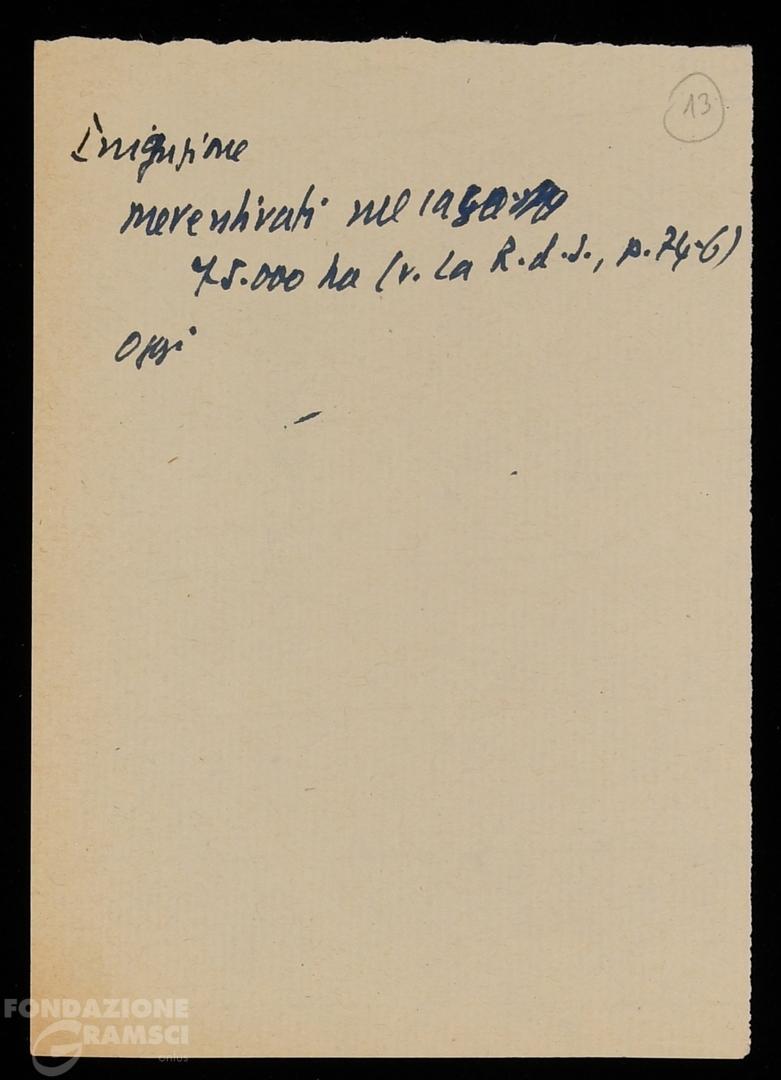 13
Irrigazione
preventivati nel 1950
75.000 ha (v. La R.d.S., p. 74-6)
Oggi
FONDAZIONE
GRAMSCI
onlus